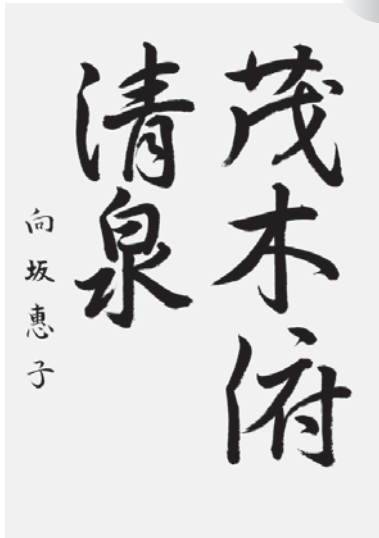 茂木俯
清泉
向坂惠子